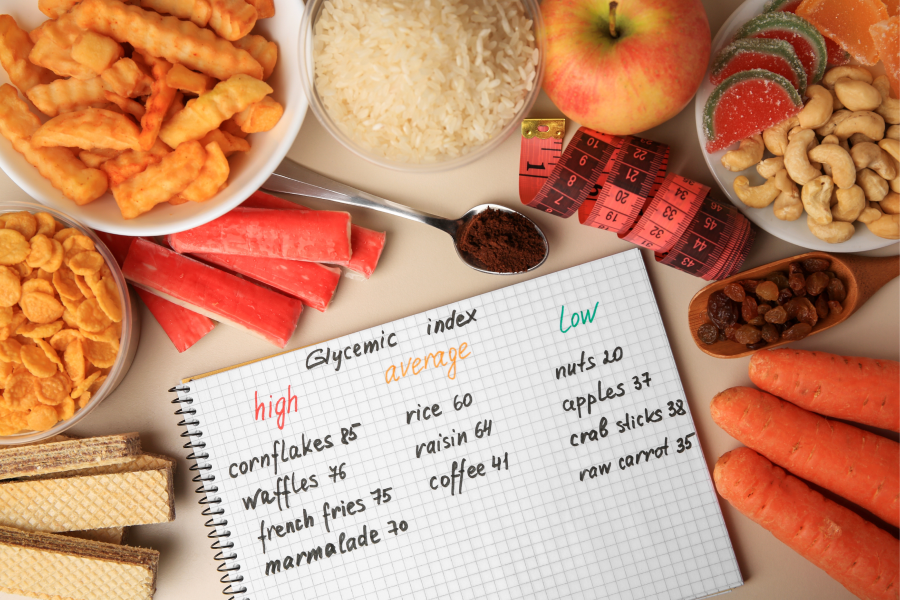 Glycemic index
high
cornflakes 85
waffles 76
french fries 75
marmalade 70
average
rice 60
raisin 64
coffee 41
low
nuts 20
apples 37
crab slicks 38
raw carrot 35
1
10
9
8
7
22
21
20
19
34
32
45
44
43